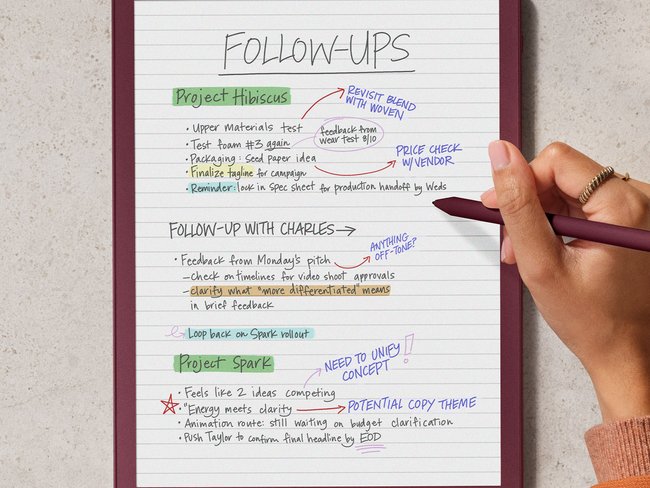 FOLLOW-UPS
Project Hibiscus
REVISIT BLEND
WITH WOVEN
• Upper materials test
• Test foam #3 again
feedback from
wear test 8/10
• Packaging: Seed paper idea
PRICE CHECK
W/VENDOR
• Finalize tagline for campaign
• Reminder: lock in spec sheet for production handoff by Weds
FOLLOW-UP WITH CHARLES→
ANYTHING
OFF-TONE?
• Feedback from Monday's pitch
– check on timelines for video shoot approvals
– clarify what "more differentiated" means
in brief feedback
Loop back on Spark rollout
Project Spark
NEED TO UNIFY
CONCEPT !
• Feels like 2 ideas competing
• "Energy meets clarity → POTENTIAL COPY THEME
• Animation route: still waiting on budget clarification
• Push Taylor to confirm final headline by EOD